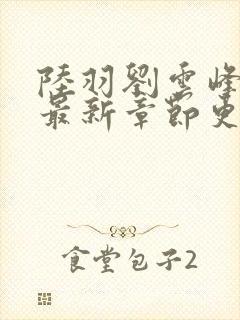 陸羽劉雲峰
最新章節更
食堂包子2